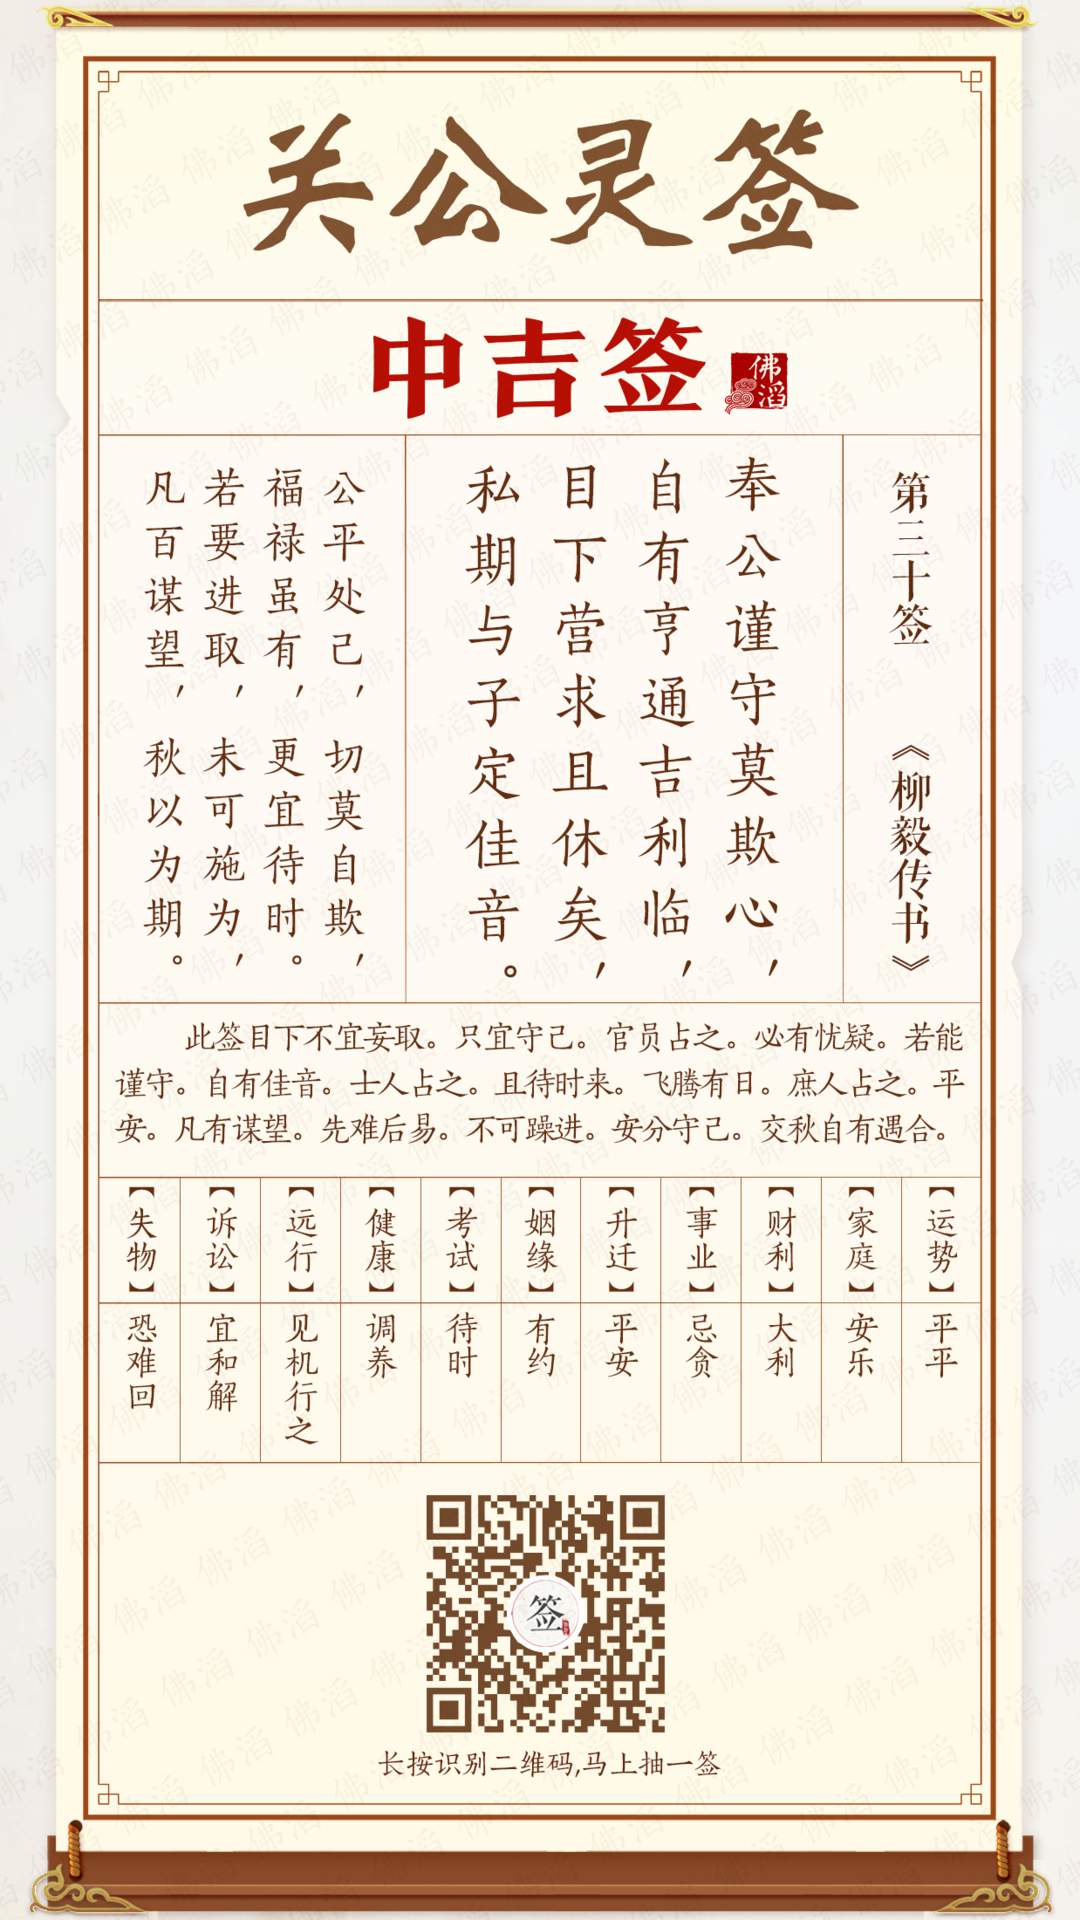 关公灵签
中吉签
佛滔
第三十签
《柳毅传书》
奉公谨守莫欺心，
自有亨通吉利临，
目下营求且休矣，
私期与子定佳音。
公平处己，切莫自欺，
福禄虽有，更宜待时。
若要进取，未可施为，
凡百谋望，秋以为期。
此签目下不宜妄取。只宜守己。官员占之。必有忧疑。若能
谨守。自有佳音。士人占之。且待时来。飞腾有日。庶人占之。平
安。凡有谋望。先难后易。不可躁进。安分守己。交秋自有遇合。
【运势】
平平
【家庭】
安乐
【财利】
大利
【事业】
忌贪
【升迁】
平安
【姻缘】
有约
【考试】
待时
【健康】
调养
【远行】
见机行之
【诉讼】
宜和解
【失物】
恐难回
签
长按识别二维码,马上抽一签